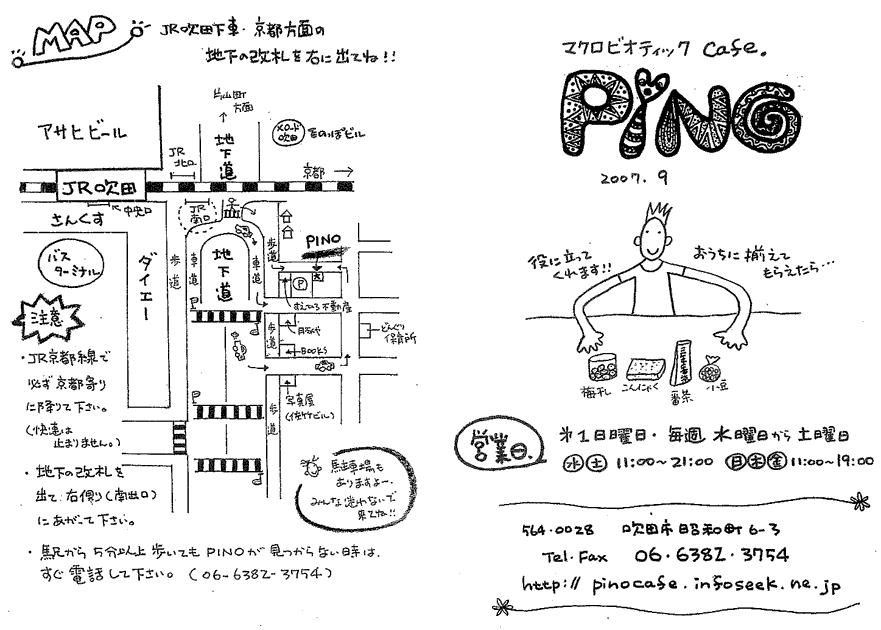 MAP
JR吹田下車・京都方面の
地下の改札を右に出てね!!
片山町
方面
アサヒビール
JR
北口
地下道
メロード
吹田
きのっぽビル
京都
JR吹田
中央口
さんくす
JR
南口
バス
ターミナル
ダイエー
歩道
車道
地下道
車道
歩道
PINO
P
すえひろ不動産
歩道
BOOKS
どんぐり
保育所
写真屋
(佐竹ビル)
歩道
注意
・JR京都線で
必ず京都寄り
に降りて下さい。
(快速は
止まりません。)
・地下の改札を
出て右側り(南出口)
にあがって下さい。
駐車場も
ありますよー。
みんな迷わないで
来てね!!
・駅から5分以上歩いてもPINOが見つからない時は、
すぐ電話して下さい。(06-6382-3754)
マクロビオティック cafe.
PiNO
2007. 9
役に立って
くれます!!
おうちに揃えて
もらえたら…
梅干し
こんにゃく
三年番茶
番茶
小豆
営業日
第1日曜日・毎週 水曜日から土曜日
水土 11:00~21:00 日木金 11:00~19:00
564-0028 吹田市昭和町6-3
Tel・Fax 06・6382・3754
http:// pinocafe.infoseek.ne.jp